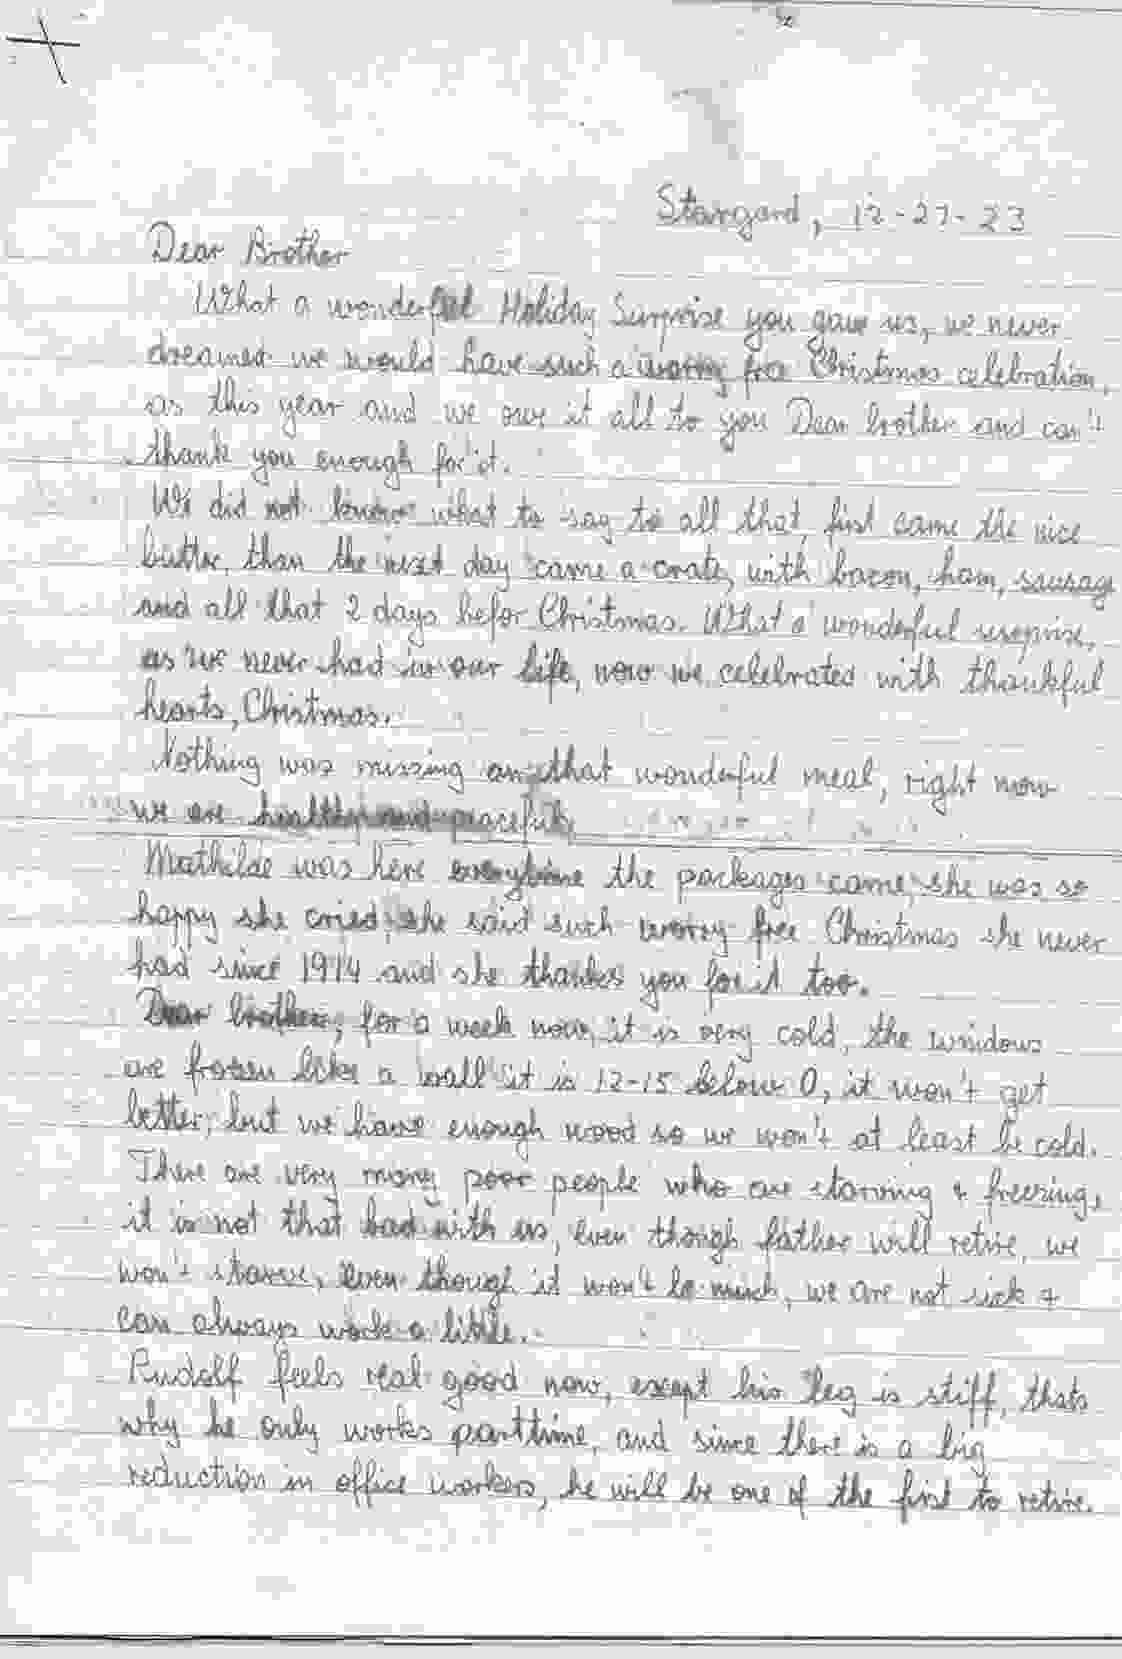 Stargard, 12-27-23
Dear Brother
What a wonderful Holiday Surprise you gave us, we never
dreamed we would have such a worry free Christmas celebration,
as this year and we owe it all to you Dear brother and can't
thank you enough for it.
We did not know what to say to all that, first came the nice
butter, than the next day came a crate, with bacon, ham, sausage
and all that 2 days befor Christmas. What a wonderful surprise,
as we never had in our life, now we celebrated with thankful
hearts, Christmas.
Nothing was missing on that wonderful meal, right now
we are healthy and peaceful.
Mathilde was here everytime the packages came, she was so
happy she cried, she said such worry free Christmas she never
had since 1914 and she thanks you for it too.
Dear brother, for a week now it is very cold, the windows
are frozen like a wall it is 12-15 below 0, it won't get
better, but we have enough wood so we won't at least be cold.
There are very many poor people who are starving + freezing,
it is not that bad with us, even though father will retire, we
won't starve, even though it won't be much, we are not sick +
can always work a little.
Rudolf feels real good now, except his leg is stiff, thats
why he only works parttime, and since there is a big
reduction in office workers, he will be one of the first to retire.